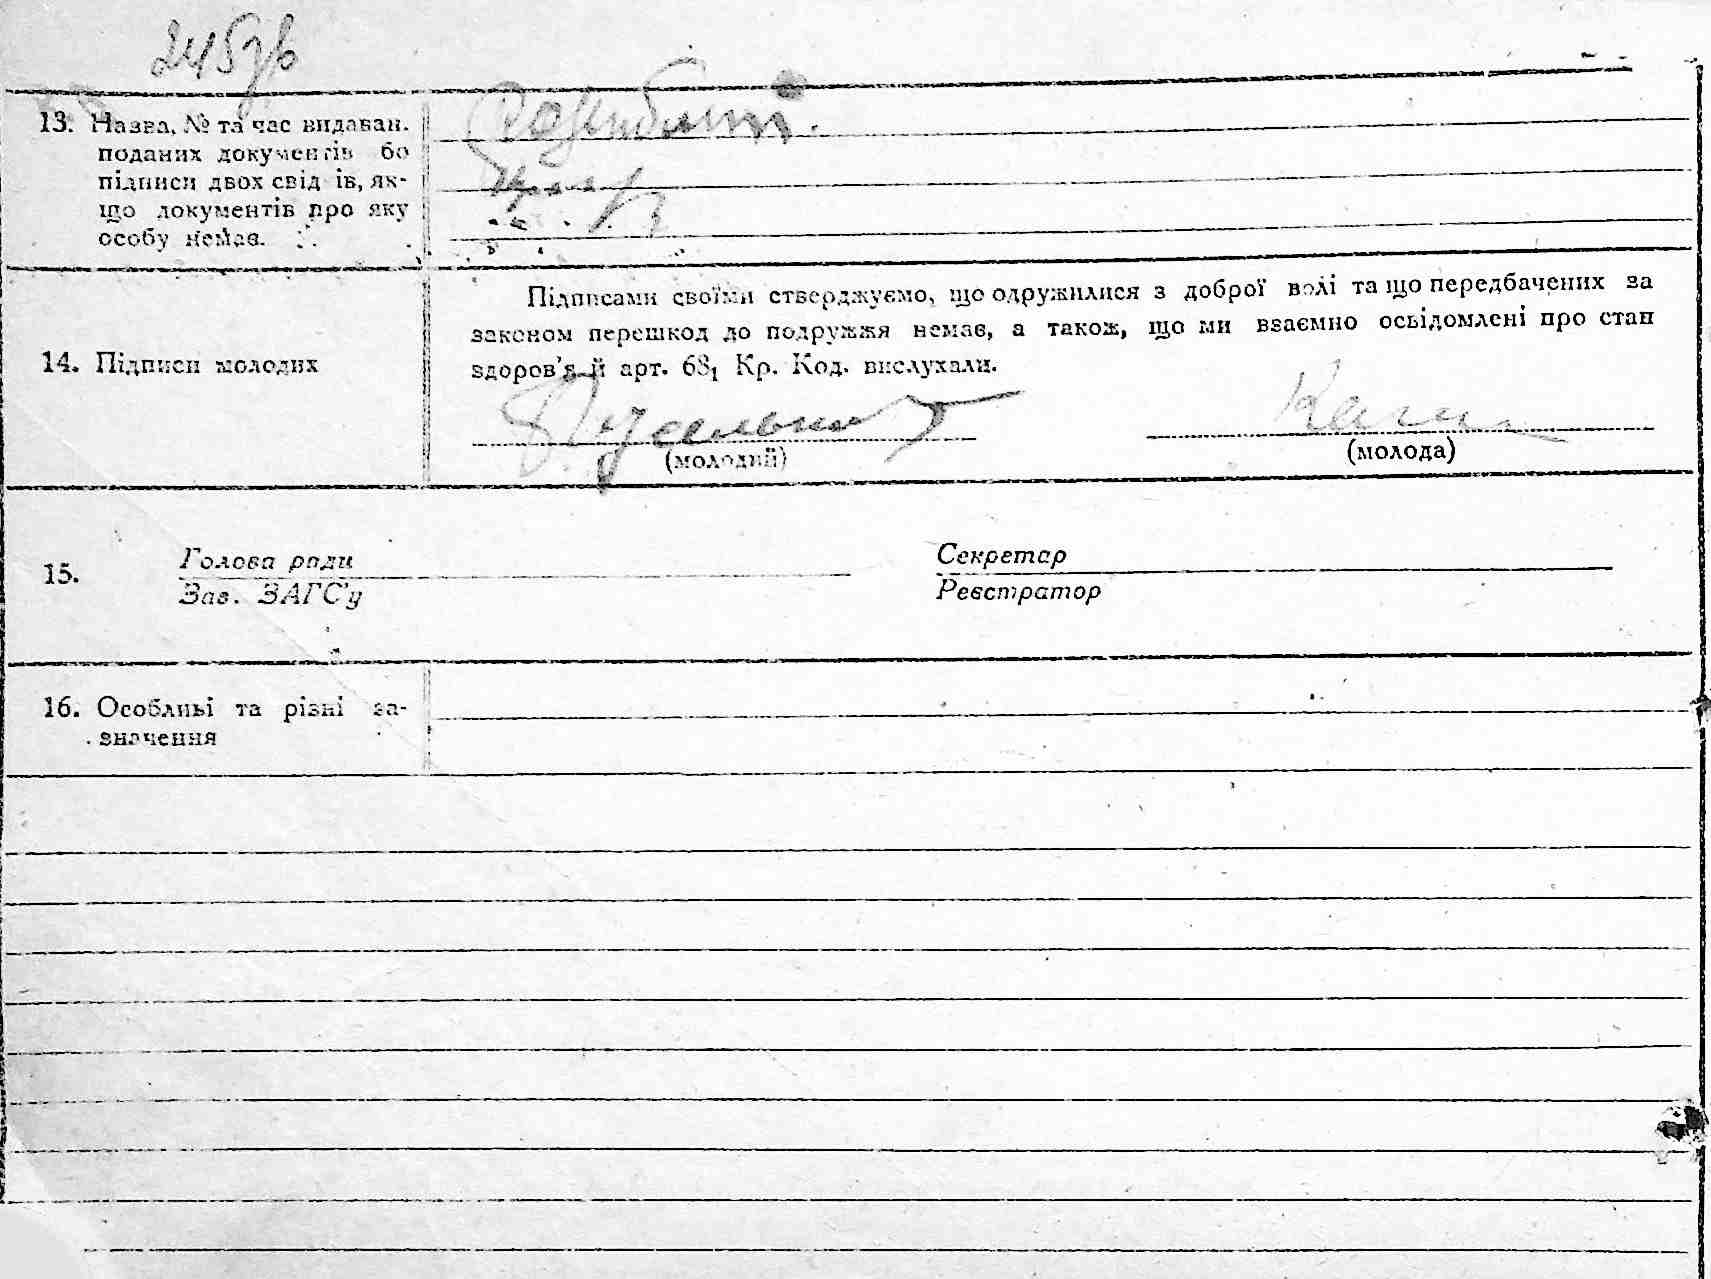 245зв
13. Назва, № та час видаван.
поданих документів бо
підписи двох свід ів, як-
що документів про яку
особу немає.
14. Підписи молодих
Підписами своїми стверджуємо, що одружилися з доброї волі та що передбачених за
законом перешкод до подружжя немає, а також, що ми взаємно осьідомлені про стан
здоров’я й арт. 68₁ Кр. Код. вислухали.
(молодий)
(молода)
15. Голова ради
Зав. ЗАГС’у
Секретар
Реєстратор
16. Особливі та різні за-
значення